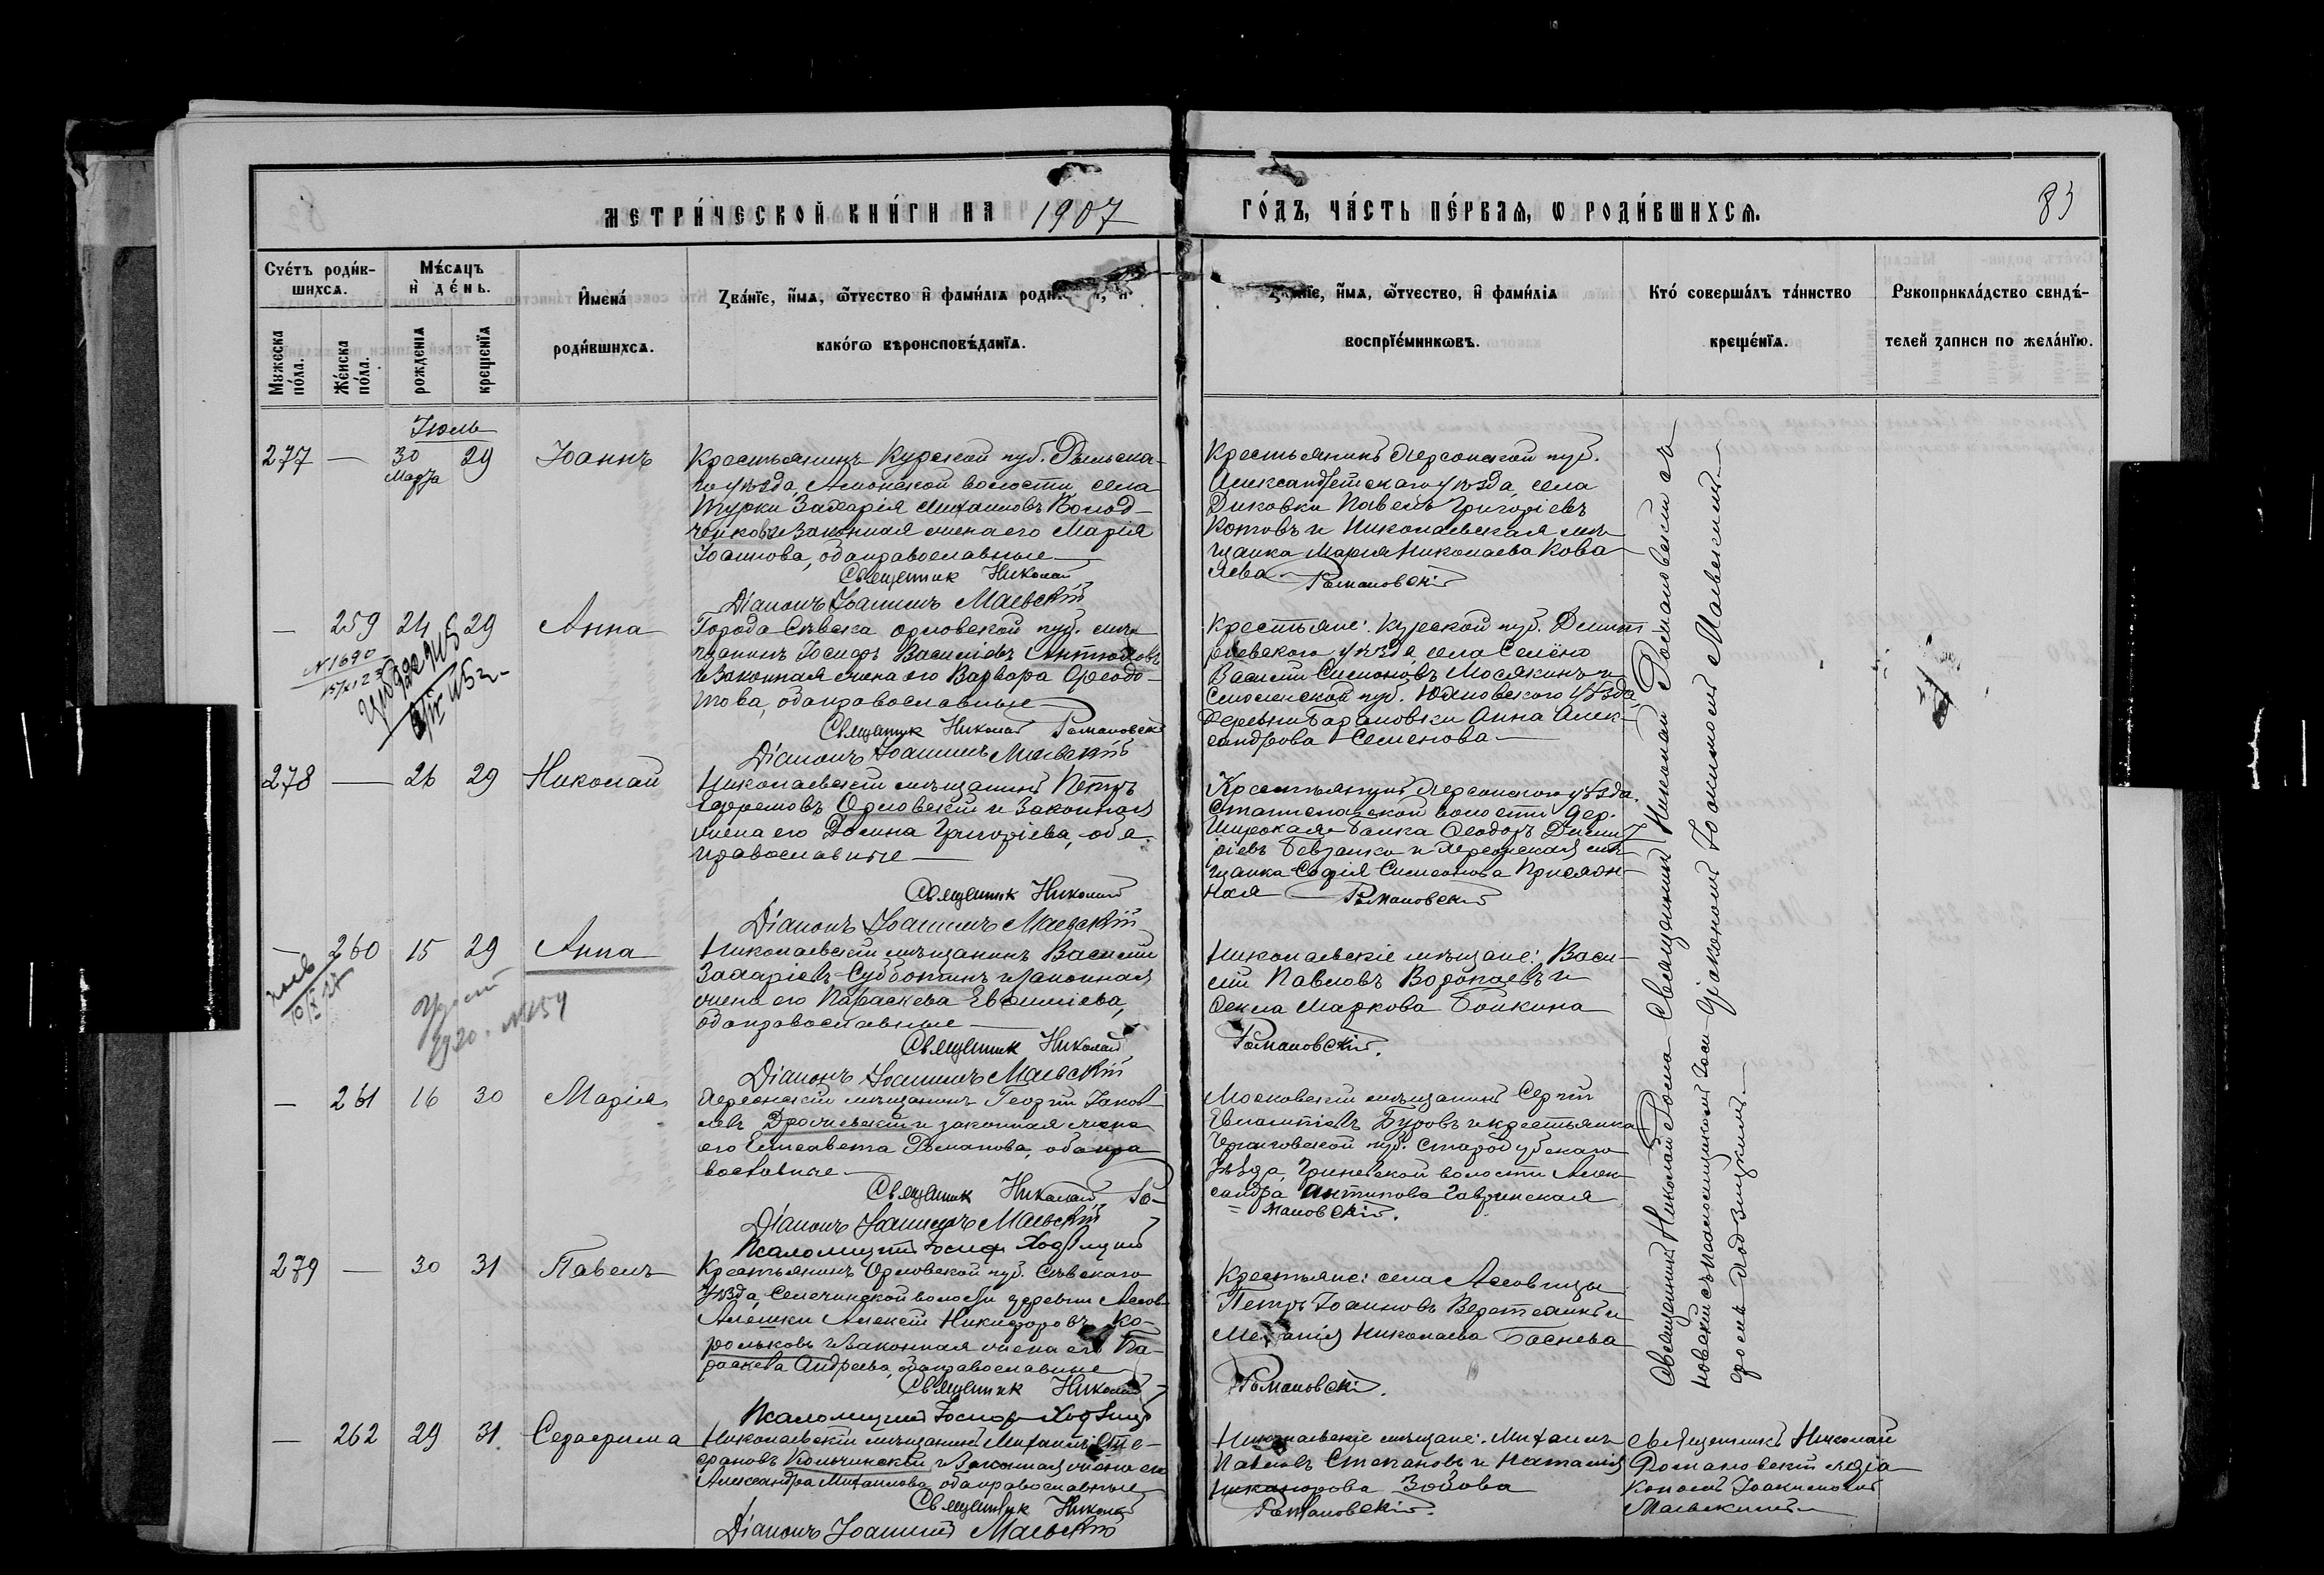 МЕТРИ́ЧЕСКОЙ КНИ́ГИ НА 1907
ГО́ДЪ, ЧА́СТЬ ПЕ́РВАЯ, Ѡ РОДИ́ВШИХСЯ.
83
Сче́тъ роди́в-
шихся.
Мѣ́сяцъ
и де́нь.
Имена́
роди́вшихся.
Зва́нїе, и́мя, ѻ́тчество и фами́лїя роди
како́гѡ вѣроисповѣ́данїя.
Мꙋжеска
по́ла.
Же́нска
по́ла.
рожденїя
крещенїя
и́мя, ѻ́тчество, и фами́лїя
воспрїе́мникѡвъ.
Кто́ соверша́лъ та́инство
креще́нїя.
Рꙋкоприкла́дство свидѣ́-
телей записи по жела́нїю.
Іюль
277 — 30 Марта 29 Іоаннъ
Крестьянинъ Курской губ. Рыльска-
го уѣзда, волости села
Захарія Михаиловъ Колод-
и законная жена его Марія
Іоаннова, оба православные
Священник Николай
Діаконъ Іоакимъ Маевскій
Крестьянинъ Херсонской губ.
Александрійскаго уѣзда, села
Диковки Павелъ Григоріевъ
Котовъ и Николаевская мѣ-
щанка Марія Николаева Кова-
лева
Романовскій
— 259 24 29 Анна
N 1690
Города Сѣвска Орловской губ. мѣ-
щанинъ Іосифъ Василіевъ Антюховъ
и законная жена его Варвара Ѳеодо-
това, оба православные
Священник Николай Романовскій
Діаконъ Іоакимъ Маевскій
Крестьяне: Курской губ. Дмит-
ріевского уѣзда села Селино
Василій Симеоновъ Мосякинъ и
Смоленской губ. Юхновского уѣзда,
деревни Барановки Анна Алек-
сандрова Семенова
278 — 26 29 Николай
Николаевскій мѣщанинъ Петръ
Ефремовъ Орловскій и законная
жена его Домна Григоріева, оба
православные
Священник Николай
Діаконъ Іоакимъ Маевскій
Крестьянинъ Херсонского уѣзда,
волости дер.
Широкая-Балка Ѳеодоръ Дмит-
ріевъ и Херсонская мѣ-
щанка Софія Симеонова
ная
Романовскій
— 260 15 29 Анна
Николаевскій мѣщанинъ Василій
Захаріевъ Субботинъ и законная
жена его Параскева Евфиміева,
оба православные
Священник Николай
Діаконъ Іоакимъ Маевскій
Николаевскіе мѣщане: Васи-
лій Павловъ Воропаевъ и
Ѳекла Маркова Бойкина
Романовскій.
— 261 16 30 Марія
Херсонскій мѣщанинъ Георгій Іаков-
левъ и законная жена
его Елисавета Романова, оба пра-
вославные
Священник Николай Ро-
Діаконъ Іоакимъ Маевскій
Псаломщикъ Іосиф Ходзицкій
Московскій мѣщанинъ Сергій
Евлампіевъ Буровъ и крестьянка
Черниговской губ. Стародубскаго
уѣзда, волости Алек-
сандра Антипова
= мановскій.
279 — 30 31 Павелъ
Крестьянинъ Орловской губ. Сѣвскаго
уѣзда, волости деревни
Алешки Алексій Никифоровъ Ко-
рольковъ и законная жена его Па-
раскева Андреева, оба православные
Священник Николай
Псаломщикъ Іосиф Ходзицкій
Крестьяне: села
Петръ Іоанновъ и
Меланія Николаева Баснева
Романовскій.
— 262 29 31 Серафима
Николаевскій мѣщанинъ Михаилъ Сте-
фановъ Кольчинскій и законная жена его
Александра Михаилова, оба православные
Священник Николай
Діаконъ Іоакимъ Маевскій
Николаевскіе мѣщане: Михаилъ
Павловъ Степановъ и Наталія
Никанорова Зобова
Романовскій.
Священникъ Николай
Романовскій съ діа-
кономъ Іоакимомъ
Маевскимъ
Священникъ Николай Рома-
новскій съ псаломщикомъ Іоси-
фомъ Ходзицкимъ
Священникъ Николай Романовскій съ
діакономъ Іоакимомъ Маевскимъ